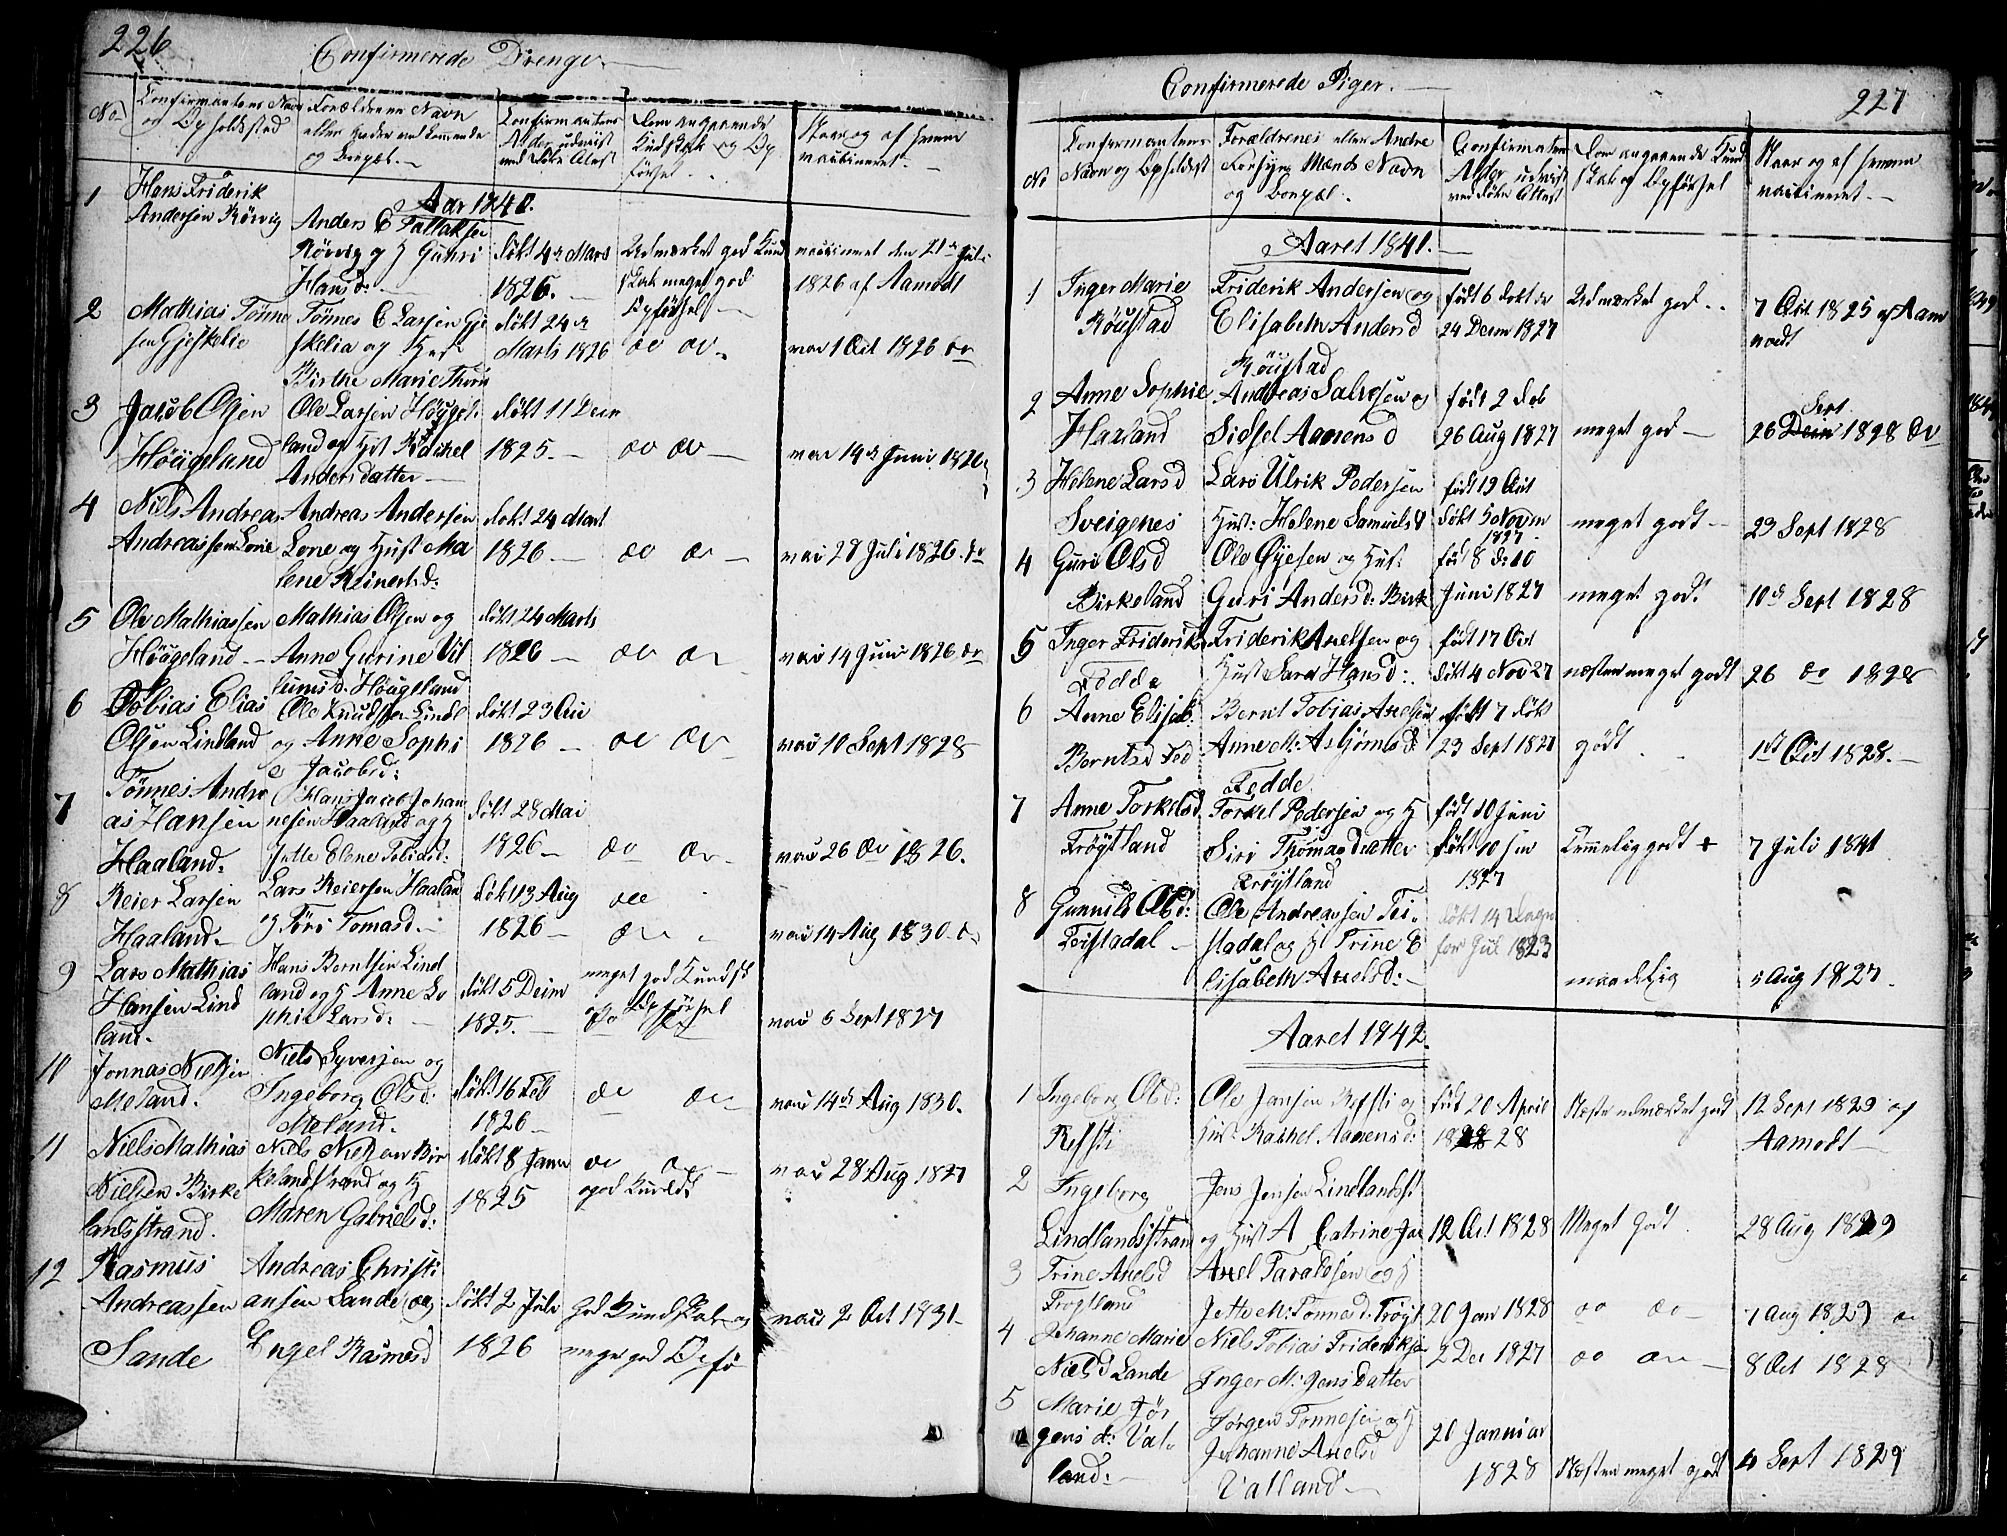 226
Confirmerede Drenge.
No
Confirmantens Navn
og Opholdssted
Forældrenes Navn
eller
og Bopæl.
Confirmantens
Alder udviist
ved Døbe Attest
Dom angaaende
Kundskab og Op
førsel
Naar og af hvem
vaccineret
Aar 1840.
1
Hans Friderik
Andersen Rörvig
Anders E Tallaksen
Rörvig og H Gunri
Hansd:
döbt 4de Marts
1826.
Udmærket god Kund
skab meget god
Opförsel
vaccineret den 21de Juli
1826 af Aamodt
2
Mathias Tönne
sen Gjeskelie
Tönnes C Larsen Gje
skelia og Hust
Birthe Marie Thom
döbt 24de
Marts 1826
do do
vac 1 Oct 1826 do
3
Jacob Olsen
Höugeland
Ole Larsen Höuge
land og Hst Rachel
Andersdatter
döbt 11 Decm
1825.
do do
vac 14de Juni 1826
4
Niels Andreas
Andreassen Lone
Andreas Andersen
Lone og Hust Ma
lene Reinertsd:
döbt 24 Mart
1826
do do
vac 28 Juli 1826 do
5
Ole Mathiassen
Höugeland
Mathias Olsen og
Anne Gurine Vil
lumsd. Höugeland
döbt 24 Marts
1826
do do
vac 14 Juni 1826 do
6
Tobias Elias
Olsen Lindland
Ole Knudsen Lindl
og Anne Sophi
e Jacobsd:
döbt 23
1826
do do
vac 10 Sept 1828
7
Tönnes Andre
as Hansen
Haaland.
Hans Jacob Johan
nesen Haaland og H
Jette Elene Tobiasd:
döbt 28 Mai
1826
do do
vac 26 do 1826.
8
Reier Larsen
Haaland.
Lars Reiersen Haaland
og Töri Tomasd.
döbt 13 Aug
1826
do
do
vac 14 Aug 1830 do
9
Lars Mathias
Hansen Lind
land.
Hans Berntsen Lind
land og H Anne So
phie Larsd:
döbt 5 Decm
1825.
meget god Kundsk
do Opförsel
vac 6 Sept 1827
10
Jonnas Nielsen
Meland.
Niels Syversen og
Ingeborg Olsd:
Meland.
döbt 16 Feb
1826
do do
vac 14de Aug 1830.
11
Niels Mathias
Nielsen Birke
landsstrand.
Niels Nielsen Bir
kelandsstrand og H
Maren Gabrielsd:
döbt 8 Janu
1825
do do
god Kundsk
vac 28 Aug 1827
12
Rasmus
Andreassen
Sande
Andreas Christi
ansen Sande og
Engel Rasmusd
döbt 2 Juli
1826
God Kundskab og
meget god Opfö
vac 2 Oct 1831
Confirmerede Piger.
227
No
Confirmantens
Navn og Opholdsst
Forældrenes eller Andre
Forsyngs Mænds Navn
og Bopæl.
Confirmanten
Alder udviist
ved Döbe Attest
Dom angaaende Kund
skab og Opförsel
Naar og af hvem
vaccineret
Aaret 1841.
1
Inger Marie
Röustad
Friderik Andersen og
Elisabeth Andersd
Röustad
födt 6 döbt de
24 Decm 1827
Udmærket god
7 Oct 1825 af Aam
modt
2
Anne Sophie
Haaland
Andreas Salvesen og
Sidsel Aamensd
födt 2 döb
26 Aug 1827
meget god
Sept
26 Decm 1828 do
3
Helene Larsd
Sveigenes
Lars Ulrik Pedersen
Hust: Helene Samuelsd
födt 19 Oct
döbt 5 Novm
1827
meget godt
23 Sept 1828
4
Guri Olsd
Birkeland
Ole Öyesen og Hust:
Guri Andersd: Birk
föd 8 d: 10
Juni 1827
meget godt
10de Sept 1828
5
Inger Friderik
Fedde
Friderik Axelsen og
Hust Sara Hansd:
födt 17 Oct
döbt 4 Nov 27
næsten meget godt
26 do 1828
6
Anne Elisab.
Berntsd Fed
Bernt Tobias Axelsen
Anne M: Asbjörnsd
Fedde
födt 7 döbt
23 Sept 1827
godt
1st Oct 1828.
7
Anne Torkelsd
Fröytland
Torkel Pedersen og H
Siri Thomasdatter
Fröytland
födt 10 Juni
döbt 10 Jun
1827
Temmelig godt
7 Juli 1841
8
Gunnild Olsd:
Feistadal
Ole Andreassen Fei
stadal og H Trine E
lisabeth Axelsd:
döbt 14 Dage
för Jul 1823
maadelig
5 Aug 1827.
Aaret 1842.
1
Ingeborg Olsd:
Refsti
Ole Jansen Refsti og
Hust Rachel Aamensd:
född 20 April
1828 28
Næste udmærket godt
12 Sept 1829 af
Aamodt
2
Ingeborg
Lindlandsstran
Jens Jensen Lindlandsst
og Hust A Catrine Jac
12 Oct 1828
Meget Godt
28 Aug 1829
3
Trine Axelsd
Frögtland
Axel Taraldsen og H
Jette M: Tönnesd. Fröyt
20 Jan 1828
do do
7 Aug 1829 do
4
Johanne Marie
Nielsd Lande
Niels Tobias Frideriksen
Inger M: Jensdatter
2 Dec 1827
do do
8 Oct 1828
5
Marie Jör
gens d: Val
land:
Jörgen Tönnesen og H
Johanne Axelsd
Valland
20 Januar
1828
Næsten meget godt
4 Sept 1829